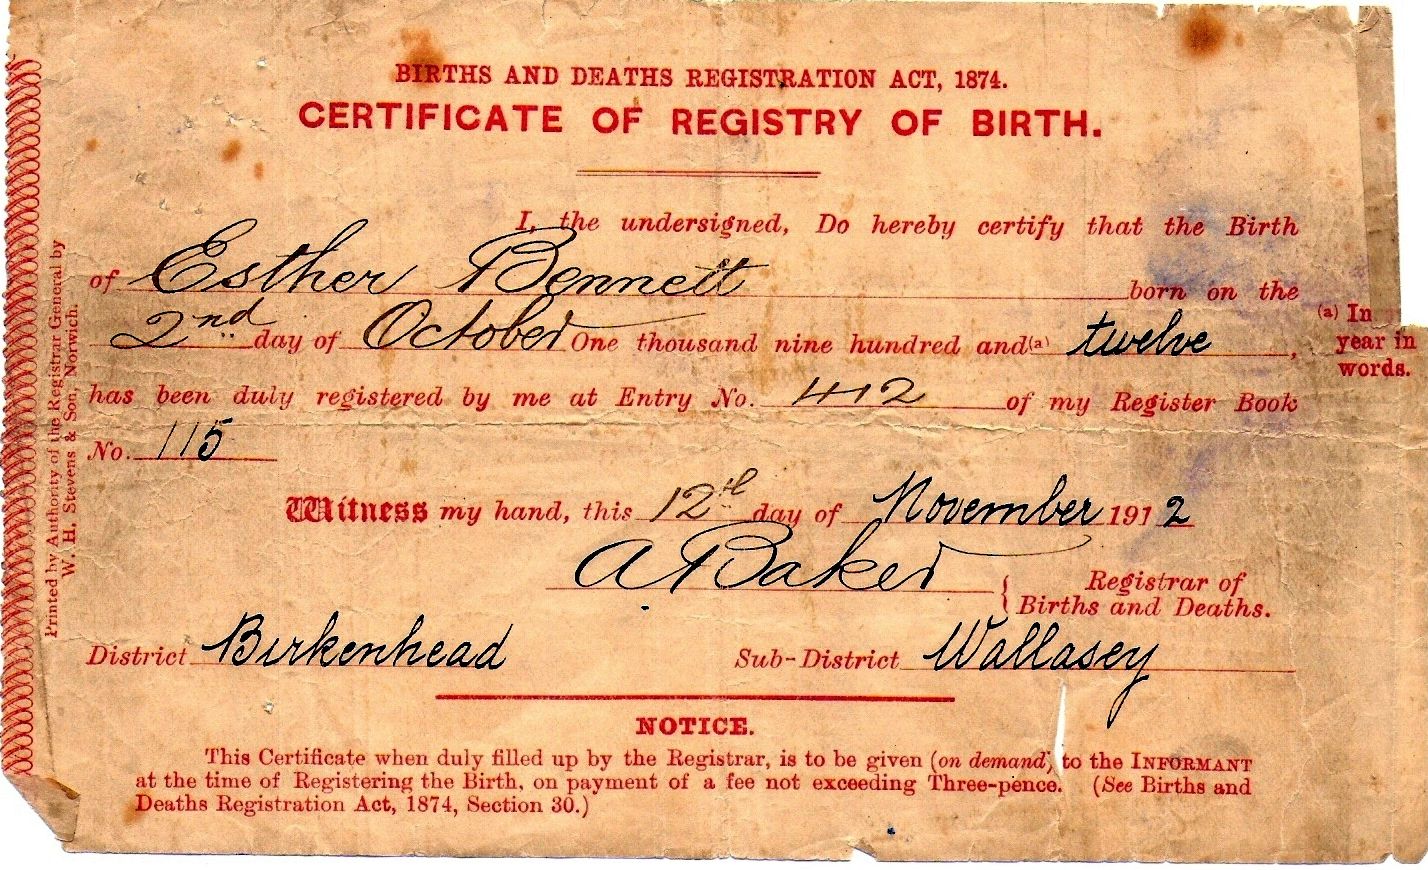 BIRTHS AND DEATHS REGISTRATION ACT, 1874.
CERTIFICATE OF REGISTRY OF BIRTH.
I, the undersigned, Do hereby certify that the Birth
of Esther Bennett born on the
2nd day of October One thousand nine hundred and (a) twelve,
(a) In
year in
words.
has been duly registered by me at Entry No. 412 of my Register Book
No. 115
Witness my hand, this 12th day of November 1912
A Baker { Registrar of
Births and Deaths.
District Birkenhead Sub-District Wallasey
NOTICE.
This Certificate when duly filled up by the Registrar, is to be given (on demand) to the INFORMANT
at the time of Registering the Birth, on payment of a fee not exceeding Three-pence. (See Births and
Deaths Registration Act, 1874, Section 30.)
Printed by Authority of the Registrar General by
W. H. Stevens & Son, Norwich.